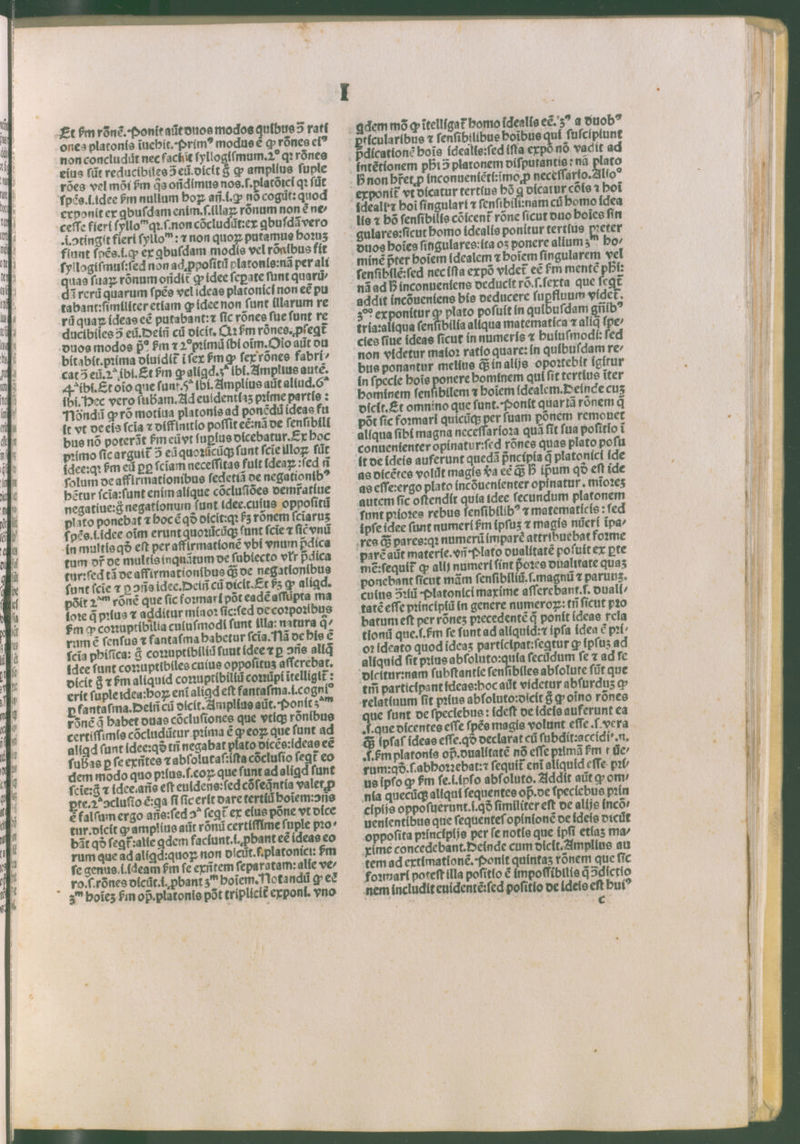 I
Et fm rõnẽ. Ponit aũt duos modos quibus ɔ̃ rati
ones platonis ĩuehit. Primꝰ modus ẽ ꝙ rõnes eiꝰ
non concludũt nec faciũt syllogismum. 2ꝰ qꝛ rõnes
eius sũt reducibiles ɔ̃ eũ. dicit g̃ ꝙ amplius suple
rões vel mõi fm q̃s oñdimus nos .s. platõici qꝛ sũt
spẽs .i. idee fm nullum hoꝝ añ .i. ꝙ nõ cogũt: quod
exponit ex qbusdam enim .s. illaꝝ rõnum non ẽ ne/
cesse fieri syllomꝰ qꝛ .s. non cõcludũt: ex qbusdã vero
.i. ɔtingit fieri syllomꝰ: ⁊ non quoꝝ putamus horuꝫ
fiunt spẽs .i. ꝙ ex qbusdam modis vel rõnibus fit
syllogismus: sed non ad ꝓpositũ platonis: nã per ali
quas suaꝝ rõnum oñdit̃ ꝙ idee seꝑate sunt quarũ/
dã rerũ quarum spẽs vel ideas platonici non eẽ pu
tabant: similiter etiam ꝙ idee non sunt illarum re
rũ quaꝝ ideas eẽ putabant: ⁊ sic rõnes sue sunt re
ducibiles ɔ̃ eũ. Deiñ cũ dicit. Qꝛ fm rõnes. ꝓsegt̃
duos modos p̃ꝰ fm ⁊ 2ꝰ primũ ibi oĩm. Oĩo aũt du
bitabit. prima diuidit̃ ĩ sex fm ꝙ sex rõnes fabri/
cat ɔ̃ eũ. 2ᵃ ibi. Et fm ꝙ aligd. 3ᵃ ibi. Amplius autẽ.
4ᵃ ibi. Et oĩo que sunt. 5ᵃ ibi. Amplius aũt aliud. 6ᵃ
ibi. Hec vero subam. Ad euidentiaꝫ prime partis:
Nõndũ ꝙ rõ motiua platonis ad ponẽdũ ideas fu
it vt de eis scia ⁊ diffinitio possit eẽ: nã de sensibili
bus nõ poterãt fm eũ vt supius dicebatur. Ex hoc
primo sic arguit̃ ɔ̃ eũ quorũcũqꝫ sunt scie illoꝝ sũt
idee: qꝛ fm eũ ꝓp sciam necessitas fuit ideaꝝ: sed ñ
solum de affirmationibus sed etiã de negationibꝰ
hẽtur scia: sunt enim alique cõclusiões demr̃atiue
negatiue: g̃ negationum sunt idee. cuius oppositũ
plato ponebat ⁊ hoc ẽ qõ dicit: qꝛ fꝫ rõnem sciaruꝫ
spẽs .i. idee oĩm erunt quorũcũqꝫ sunt scie ⁊ sic vnũ
in multis qõ est per affirmationẽ vbi vnum p̃dica
tum dr̃ de multis inquãtum de subiecto vlr̃ p̃dica
tur: sed tã de affirmationibus q̃ꝫ de negationibus
sunt scie ⁊ ꝑ ɔñs idee. Deiñ cũ dicit. Et fꝫ ꝙ aligd.
põit 2ᵃᵐ rõnẽ que sic formari põt eadẽ assũpta ma
iore q̃ prius ⁊ additur minor sic: sed de corporibus
fm ꝙ corruptibilia cuiusmodi sunt illa: natura q̃/
rum ẽ sensus ⁊ fantasma habetur scia. Nã de his ẽ
scia phisica: g̃ corruptibiliũ sunt idee ⁊ ꝑ ɔñs aliq̃
idee sunt corruptibiles cuius oppositũꝫ asserebat.
dicit g̃ ⁊ fm aliquid corruptibiliũ corrũpi ĩtelligit̃:
erit suple idea: hoꝝ eni aligd est fantasma .i. cogniꝰ
ꝑ fantasma. Deiñ cũ dicit. Amplius aũt. Ponit 3ᵃᵐ
rõnẽ q̃ habet duas cõclusiones que vtiqꝫ rõnibus
certissimis cõcludũtur prima ẽ ꝙ eoꝝ que sunt ad
aligd sunt idee: qõ tñ negabat plato dicẽs: ideas eẽ
subãs ꝑ se exñtes ⁊ absolutas: ista cõclusio segt̃ eo
dem modo quo prius .s. coꝝ que sunt ad aligd sunt
scie: g̃ ⁊ idee. añs est euidens: sed cõseqñtia valet ꝓ
pte. 2ᵃ ɔclusio ẽ: ga si sic erit dare tertiũ hoĩem: ɔñs
ẽ falsum ergo añs: sed ɔᵃ segt̃ ex eius põne vt dice
tur. dicit ꝙ amplius aũt rõnũ certissime suple pro/
bãt qõ segt̃: alie gdem faciunt .i. ꝓbant eẽ ideas eo
rum que ad aligd: quoꝝ non dicũt .s. platonici: fm
se genus .i. ideam fm se exñtem separatam: alie ve/
ro .s. rõnes dicũt .i. ꝓbant 3ᵐ hoĩem. Notandũ ꝙ eẽ
3ᵐ hoĩeꝫ fm op̃. platonis põt tripliciter̃ exponi. vno
gdem mõ ꝙ ĩtelligat̃ homo idealis eẽ. 3ꝰ a duobꝰ
ꝑticularibus ⁊ sensibilibus hoĩbus qui suscipiunt
p̃dicationẽ hoĩs idealis: sed ista expõ nõ vadit ad
intẽtionem pħi ɔ̃ platonem disputantis: nã plato
ħ non hr̃et ꝓ inconueniẽti: imo ꝓ necessario. Alioꝰ
exponit̃ vt dicatur tertius hõ g dicatur cõis ⁊ hoĩ
ideali ⁊ hoĩ singulari ⁊ sensibili: nam cũ homo idea
lis ⁊ hõ sensibilis cõicent̃ rõne sicut duo hoĩes sin
gulares: sicut homo idealis ponitur tertius p̃eter
duos hoĩes singulares: ita oꝫ ponere alium 3ᵐ ho/
minẽ p̃ter hoĩem idealem ⁊ hoĩem singularem vel
sensibilẽ: sed nec ista expõ videt̃ eẽ fm mentẽ pħi:
nã ad ħ inconueniens deducit rõ .s. sexta que segt̃
addit incõueniens his deducere supfluum videt̃.
3ᵒᵒ exponitur ꝙ plato posuit in quibusdam gñibꝰ
tria: aliqua sensibilia aliqua matematica ⁊ aliq̃ spe/
cies siue ideas sicut in numeris ⁊ huiusmodi: sed
non videtur maior ratio quare: in quibusdam re/
bus ponantur melius q̃ꝫ in alijs oportebit igitur
in specie hoĩs ponere hominem qui sit tertius ĩter
hominem sensibilem ⁊ hoĩem idealem. Deinde cuꝫ
dicit. Et omnino que sunt. Ponit quartã rõnem q̃
põt sic formari quicũqꝫ per suam põnem remouet
aliqua sibi magna necessariora quã sit sua positio ĩ
conuenienter opinatur: sed rõnes quas plato posu
it de ideis auferunt quedã p̃ncipia q̃ platonici ide
as dicẽtes volũt magis ṽa eẽ q̃ꝫ ħ ipum qõ est ide
as esse: ergo plato incõuenienter opinatur. mioreꝫ
autem sic ostendit quia idee secundum platonem
sunt priores rebus sensibilibꝰ ⁊ matematicis: sed
ipse idee sunt numeri fm ipsuꝫ ⁊ magis nũeri ĩpa/
res q̃ꝫ pares: qꝛ numerũ imparẽ attribuebat forme
parẽ aũt materie. vñ Plato dualitatẽ posuit ex ꝑte
mẽ: sequit̃ ꝙ alij numeri sint p̃ores dualitate quaꝫ
ponebant sicut mãm sensibiliũ .s. magnũ ⁊ paruuꝫ.
cuius ɔ̃riũ Platonici maxime asserebant .s. duali/
tatẽ esse principiũ in genere numeroꝝ: tñ sicut pro
batum est per rõneꝫ precedentẽ q̃ ponit ideas rela
tionũ que .s. fm se sunt ad aliquid: ⁊ ipsa idea ẽ pri/
or ideato quod ideaꝫ participat: segtur ꝙ ipsuꝫ ad
aliquid sit prius absoluto: quia secũdum se ⁊ ad se
dicitur: nam substantie sensibiles absolute sũt que
tm̃ participant ideas: hoc aũt videtur absurduꝫ ꝙ
relatiuum sit prius absoluto: dicit g̃ ꝙ oĩno rõnes
que sunt de speciebus: idest de ideis auferunt ea
.s. que dicentes esse spẽs magis volunt esse .s. vera
q̃ꝫ ipsas ideas esse. qõ declarat cũ subdit: accidi/. n.
.s. fm platonis op̃. dualitatẽ nõ esse primã fm ⁊ ṽe/
rum: qõ .s. abhorrebat: ⁊ sequit̃ eni aliquid esse pri/
us ipso ꝙ fm se .i. ipso absoluto. Addit aũt ꝙ om/
nia quecũqꝫ aliqui sequentes op̃. de speciebus prin
cipijs opposuerunt .i. qõ similiter est de alijs incõ/
uenientibus que sequentes̃ opinionẽ de ideis dicũt
opposita principijs per se notis que ipsi etiaꝫ ma/
xime concedebant. Deinde cum dicit. Amplius au
tem ad extimationẽ. Ponit quintaꝫ rõnem que sic
formari potest illa positio ẽ impossibilis q̃ ɔ̃dictio
nem includit euidentẽ: sed positio de ideis est huiꝰ
c